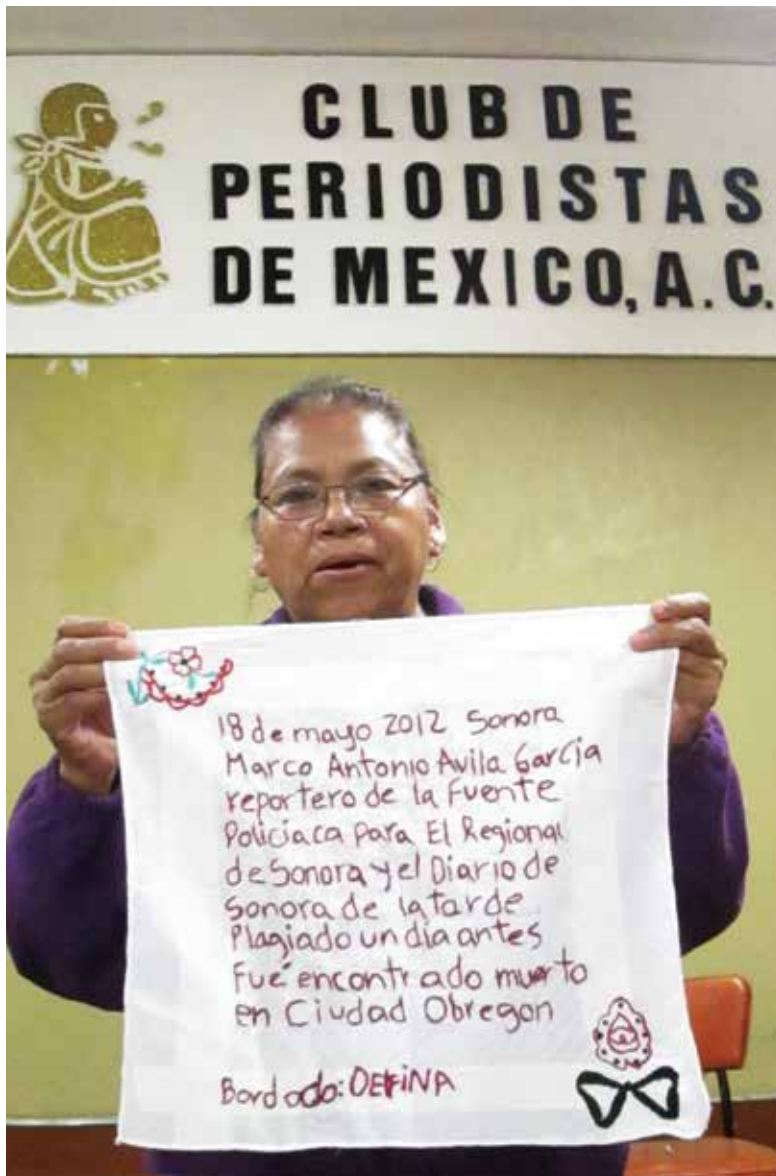 CLUB DE
PERIODISTAS
DE MEXICO, A.C.
18 de mayo 2012 Sonora
Marco Antonio Avila García
reportero de la Fuente
Policiaca para El Regional
de Sonora y el Diario de
Sonora de la tarde
Plagiado un dia antes
Fué encontrado muerto
en Ciudad Obregon
Bordado: DELFINA